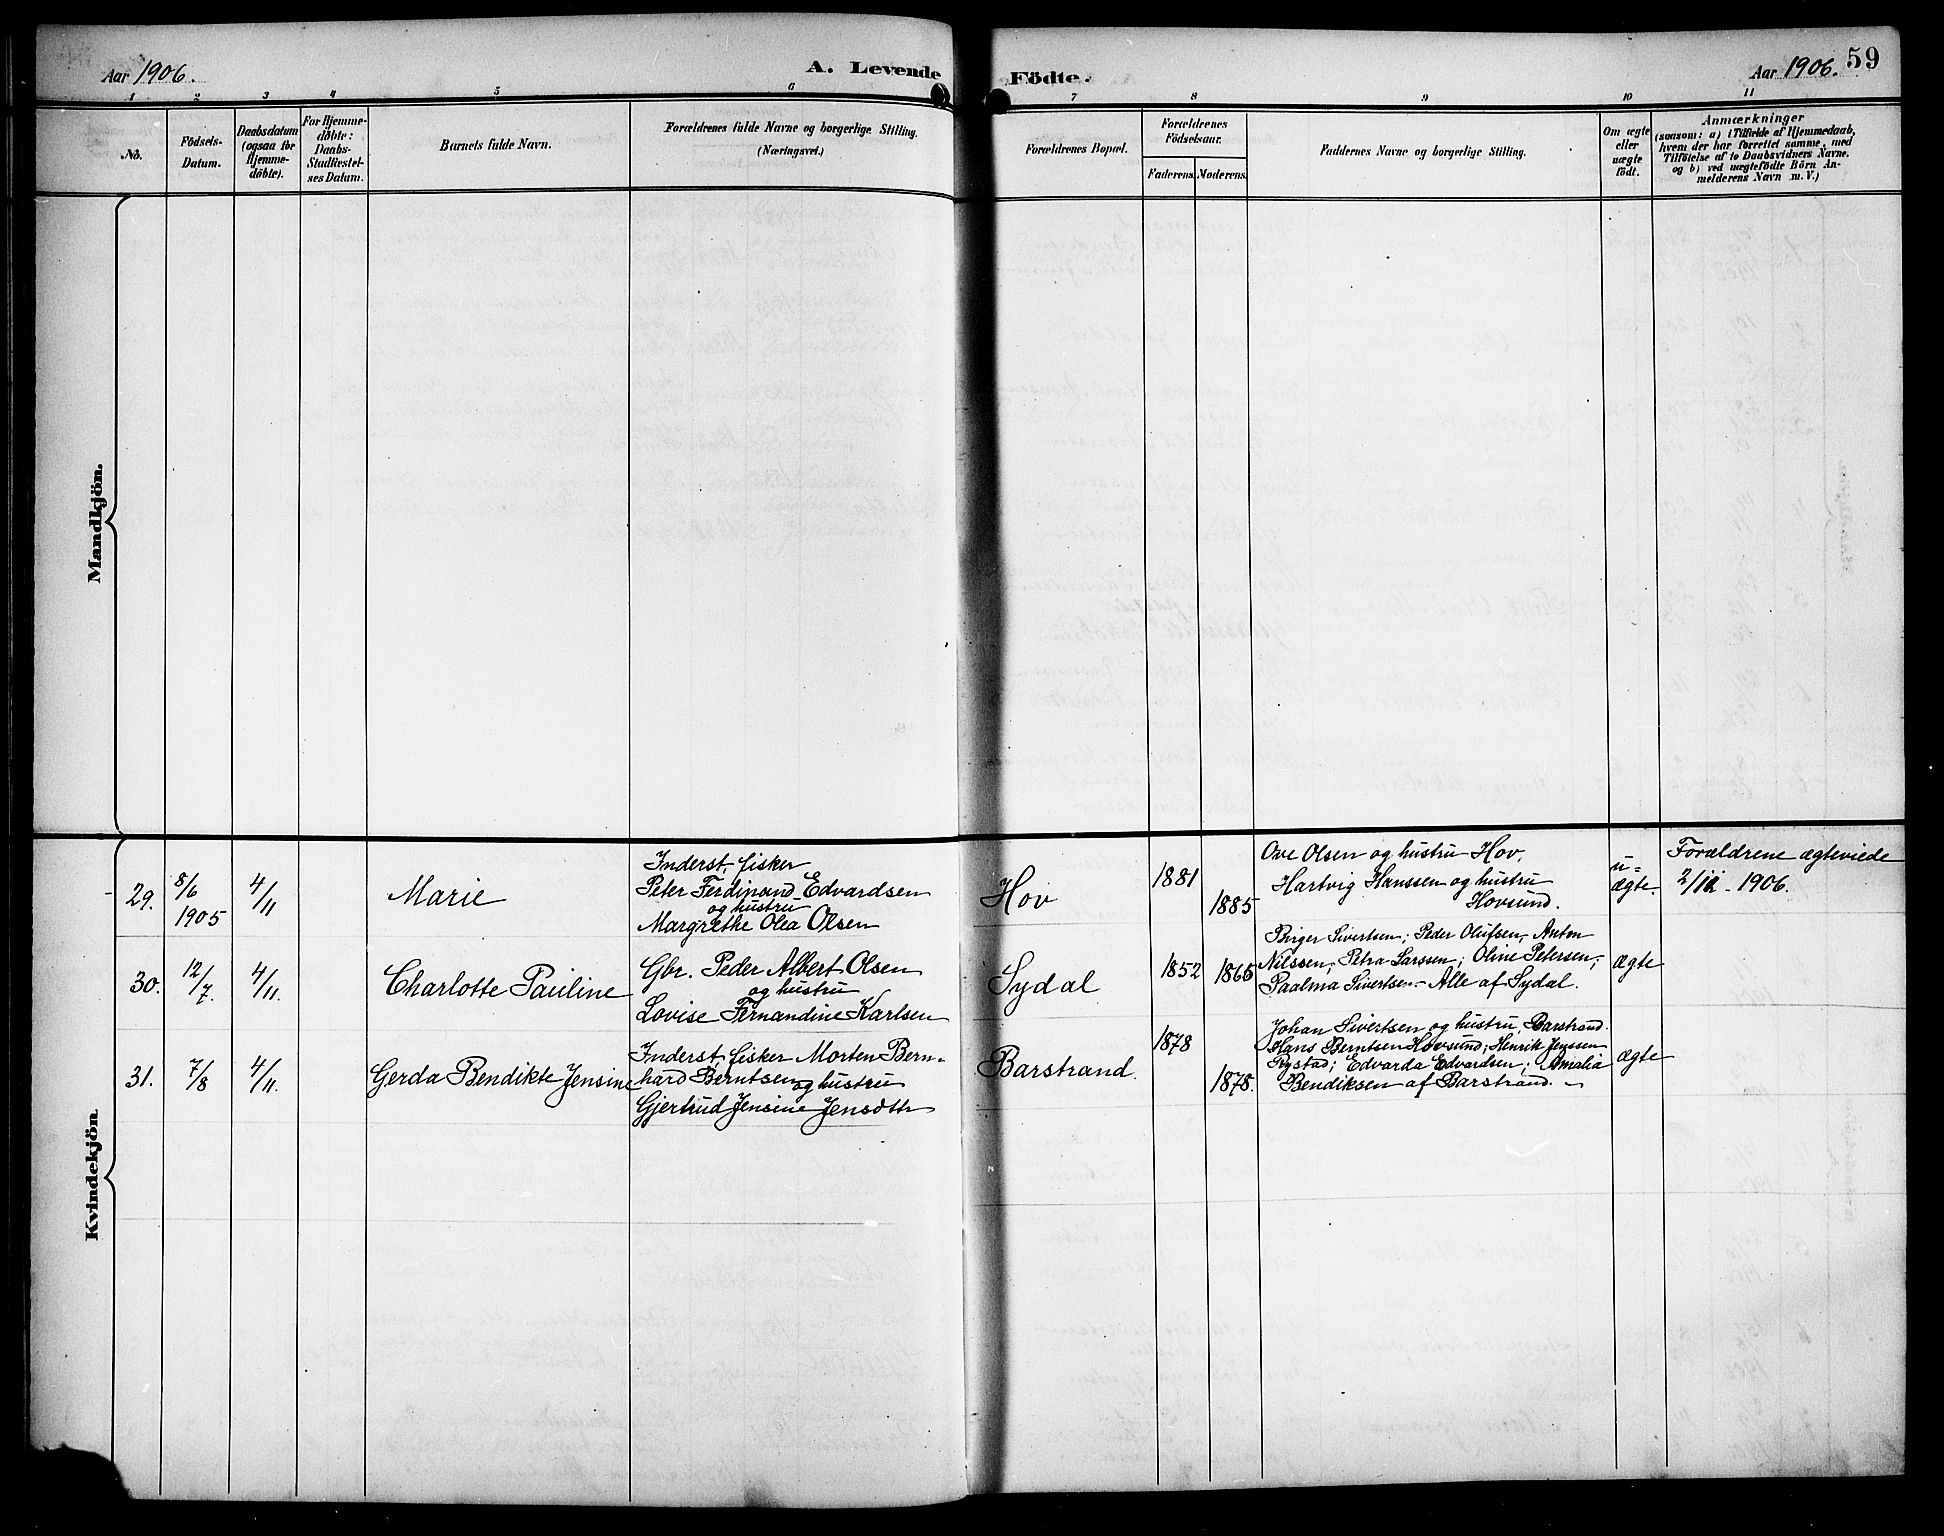 Aar 1906.
A. Levende Födte.
Aar 1906. 59
1 2 3 4 5 6 7 8 9 10 11
No.
Födsels-
Datum.
Daabsdatum
(ogsaa for
Hjemme-
döbte).
For Hjemme-
döbte:
Daabs-
Stadfæstel-
ses Datum.
Barnets fulde Navn.
Forældrenes fulde Navne og borgerlige Stilling.
(Næringsvei.)
Forældrenes Bopæl.
Forældrenes
Födselsaar.
Faderens. Moderens.
Faddernes Navne og borgerlige Stilling.
Om ægte
eller
uægte
födt.
Anmærkninger
(saasom: a) i Tilfælde af Hjemmedaab,
hvem der har forrettet samme, med
Tilföielse af to Daabsvidners Navne.
og b) ved uægtefödte Börn An-
melderens Navn m. V.)
Mandkjön.
Kvindekjön.
29.
8/6
1905
4/11
Marie
Inderst, fisker
Peter Ferdinand Edvardsen
og hustru
Margrethe Olea Olsen
Hov
1881
1885
Ove Olsen og hustru Hov,
Hartvig Hanssen og hustru
Hovsund.
u-
ægte.
Forældrene ægteviede
2/11 - 1906.
30.
12/7.
4/11.
Charlotte Pauline
Gbr. Peder Albert Olsen
og hustru
Lovise Fernandine Karlsen
Sydal
1852
1865
Birger Sivertsen; Peder Olufsen, Anton
Nilssen, Petra Larssen; Oline Petersen;
Paalma Sivertsen - Alle af Sydal.
ægte
31.
7/8
4/11.
Gerda Bendikte Jensine
Inderst, fisker Morten Bern-
hard Berntsen og hustru
Gjertrud Jensine Jensdtr
Barstrand.
1878
1878.
Johan Sivertsen og hustru, Barstrand.
Hans Berntsen Hovsund; Henrik Jenssen
Rystad; Edvarda Edvardsen; Amalia
Bendiksen af Barstrand. -
ægte